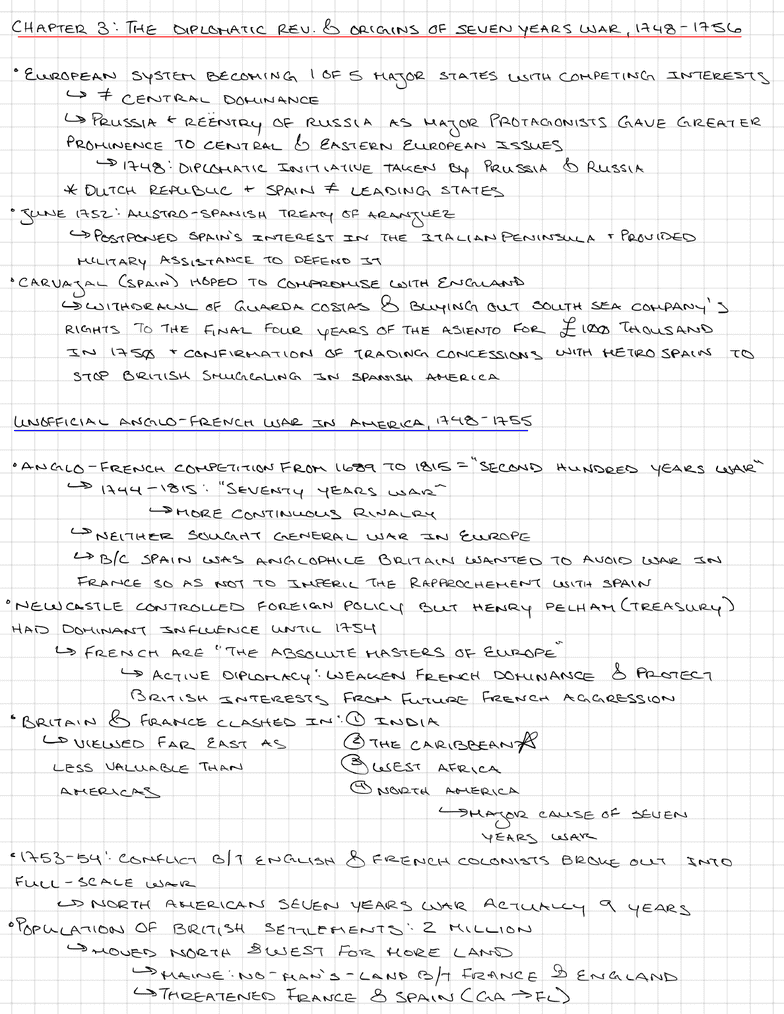 CHAPTER 3: THE DIPLOMATIC REV. & ORIGINS OF SEVEN YEARS WAR, 1748-1756
• EUROPEAN SYSTEM BECOMING 1 OF 5 MAJOR STATES WITH COMPETING INTERESTS
↳ ≠ CENTRAL DOMINANCE
↳ PRUSSIA + REËNTRY OF RUSSIA AS MAJOR PROTAGONISTS GAVE GREATER
PROMINENCE TO CENTRAL & EASTERN EUROPEAN ISSUES
↳ 1748: DIPLOMATIC INITIATIVE TAKEN BY PRUSSIA & RUSSIA
* DUTCH REPUBLIC + SPAIN ≠ LEADING STATES
• JUNE 1752: AUSTRO-SPANISH TREATY OF ARANJUEZ
↳ POSTPONED SPAIN'S INTEREST IN THE ITALIAN PENINSULA + PROVIDED
MILITARY ASSISTANCE TO DEFEND IT
• CARVAJAL (SPAIN) HOPED TO COMPROMISE WITH ENGLAND
↳ WITHDRAWL OF GUARDA COSTAS & BUYING OUT SOUTH SEA COMPANY'S
RIGHTS TO THE FINAL FOUR YEARS OF THE ASIENTO FOR £100 THOUSAND
IN 1750 + CONFIRMATION OF TRADING CONCESSIONS WITH METRO SPAIN TO
STOP BRITISH SMUGGLING IN SPANISH AMERICA
UNOFFICIAL ANGLO-FRENCH WAR IN AMERICA, 1748-1755
• ANGLO-FRENCH COMPETITION FROM 1689 TO 1815 = "SECOND HUNDRED YEARS WAR"
↳ 1744-1815: "SEVENTY YEARS WAR"
↳ MORE CONTINUOUS RIVALRY
↳ NEITHER SOUGHT GENERAL WAR IN EUROPE
↳ B/C SPAIN WAS ANGLOPHILE BRITAIN WANTED TO AVOID WAR IN
FRANCE SO AS NOT TO IMPERIL THE RAPPROCHEMENT WITH SPAIN
• NEWCASTLE CONTROLLED FOREIGN POLICY BUT HENRY PELHAM (TREASURY)
HAD DOMINANT INFLUENCE UNTIL 1754
↳ FRENCH ARE "THE ABSOLUTE MASTERS OF EUROPE"
↳ ACTIVE DIPLOMACY: WEAKEN FRENCH DOMINANCE & PROTECT
BRITISH INTERESTS FROM FUTURE FRENCH AGGRESSION
• BRITAIN & FRANCE CLASHED IN: ① INDIA
↳ VIEWED FAR EAST AS ② THE CARIBBEAN ☆
LESS VALUABLE THAN ③ WEST AFRICA
AMERICAS ④ NORTH AMERICA
↳ MAJOR CAUSE OF SEVEN
YEARS WAR
• 1753-54: CONFLICT B/T ENGLISH & FRENCH COLONISTS BROKE OUT INTO
FULL-SCALE WAR
↳ NORTH AMERICAN SEVEN YEARS WAR ACTUALLY 9 YEARS
• POPULATION OF BRITISH SETTLEMENTS: 2 MILLION
↳ MOVED NORTH & WEST FOR MORE LAND
↳ MAINE: NO-MAN'S-LAND B/T FRANCE & ENGLAND
↳ THREATENED FRANCE & SPAIN (GA → FL)